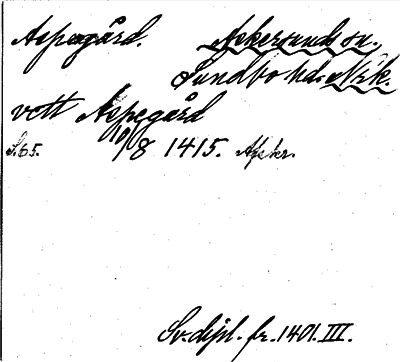 Aspegård. Askersunds sn.
Sundbo hd. Närk.
vdt Aspegård
S. 65. 10/8 1415. Afskr.
Sv. dipl. fr. 1401. III.